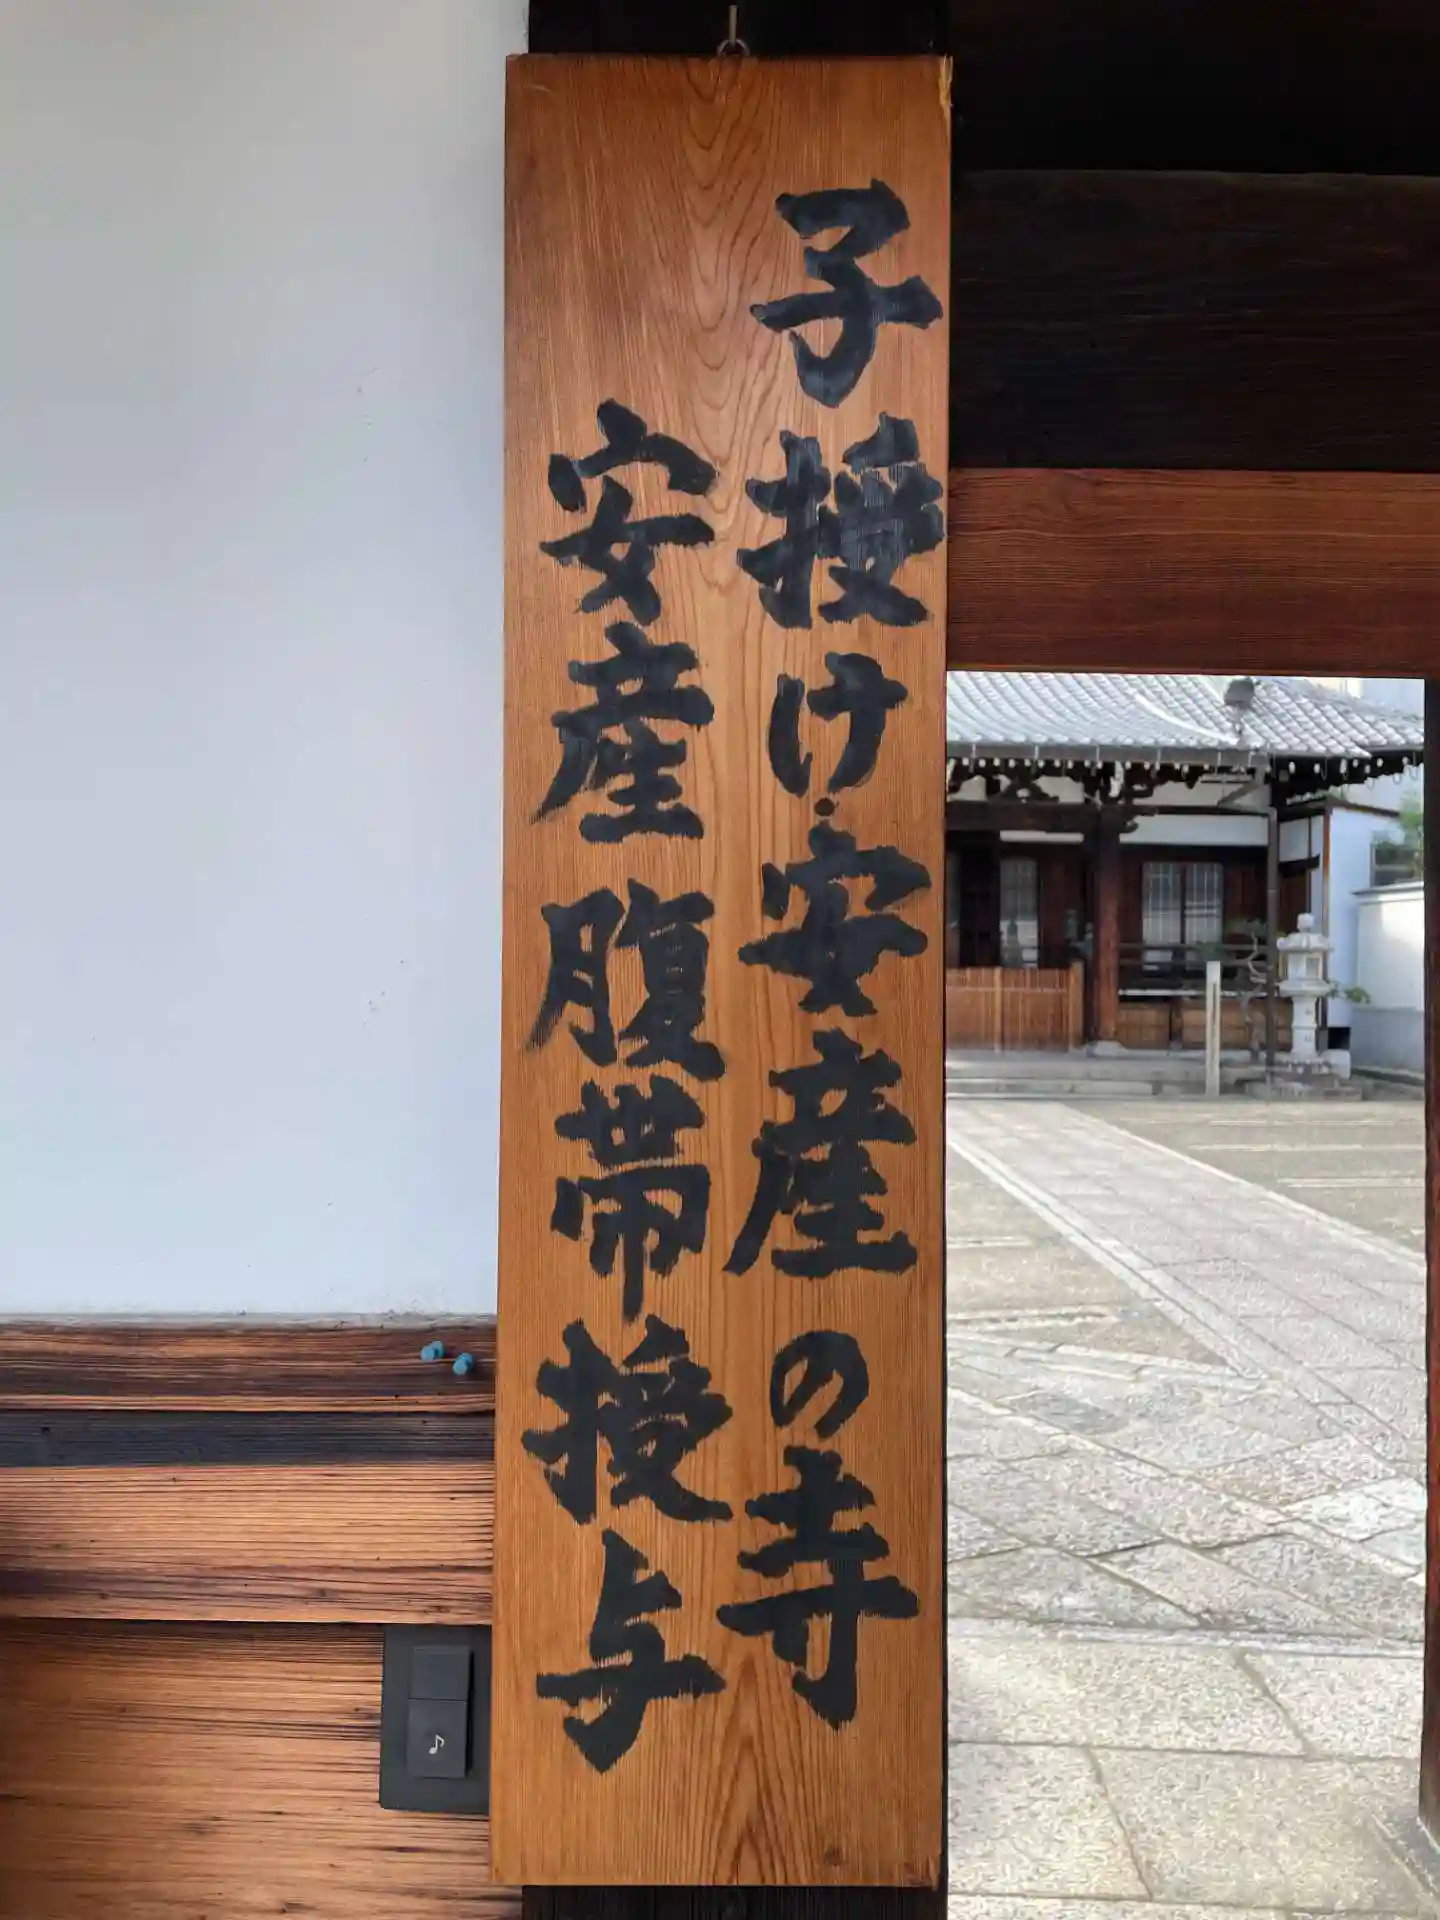 子授け・安産の寺
安産腹帯授与